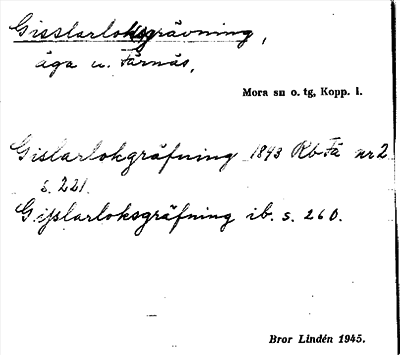 Gisslarloksgrävning,
äga u. Färnäs,
Mora sn o. tg, Kopp. l.
Gislarlokgräfning 1843 Rb Fä nr 2
s. 221.
Gisslarloksgräfning ib. s. 260.
Bror Lindén 1945.